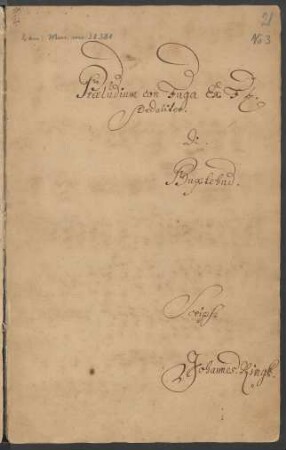 21
No 3
Præludium con Fuga Ex
Pedaliter.
di
Buxtehud.
Scripsi
Johannes Ringk.